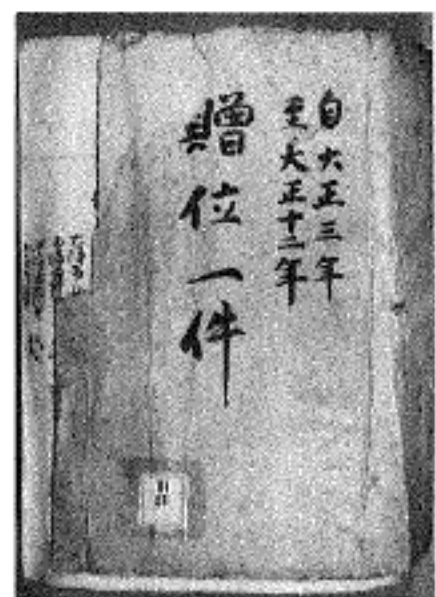 自大正三年
至大正十二年
贈位一件